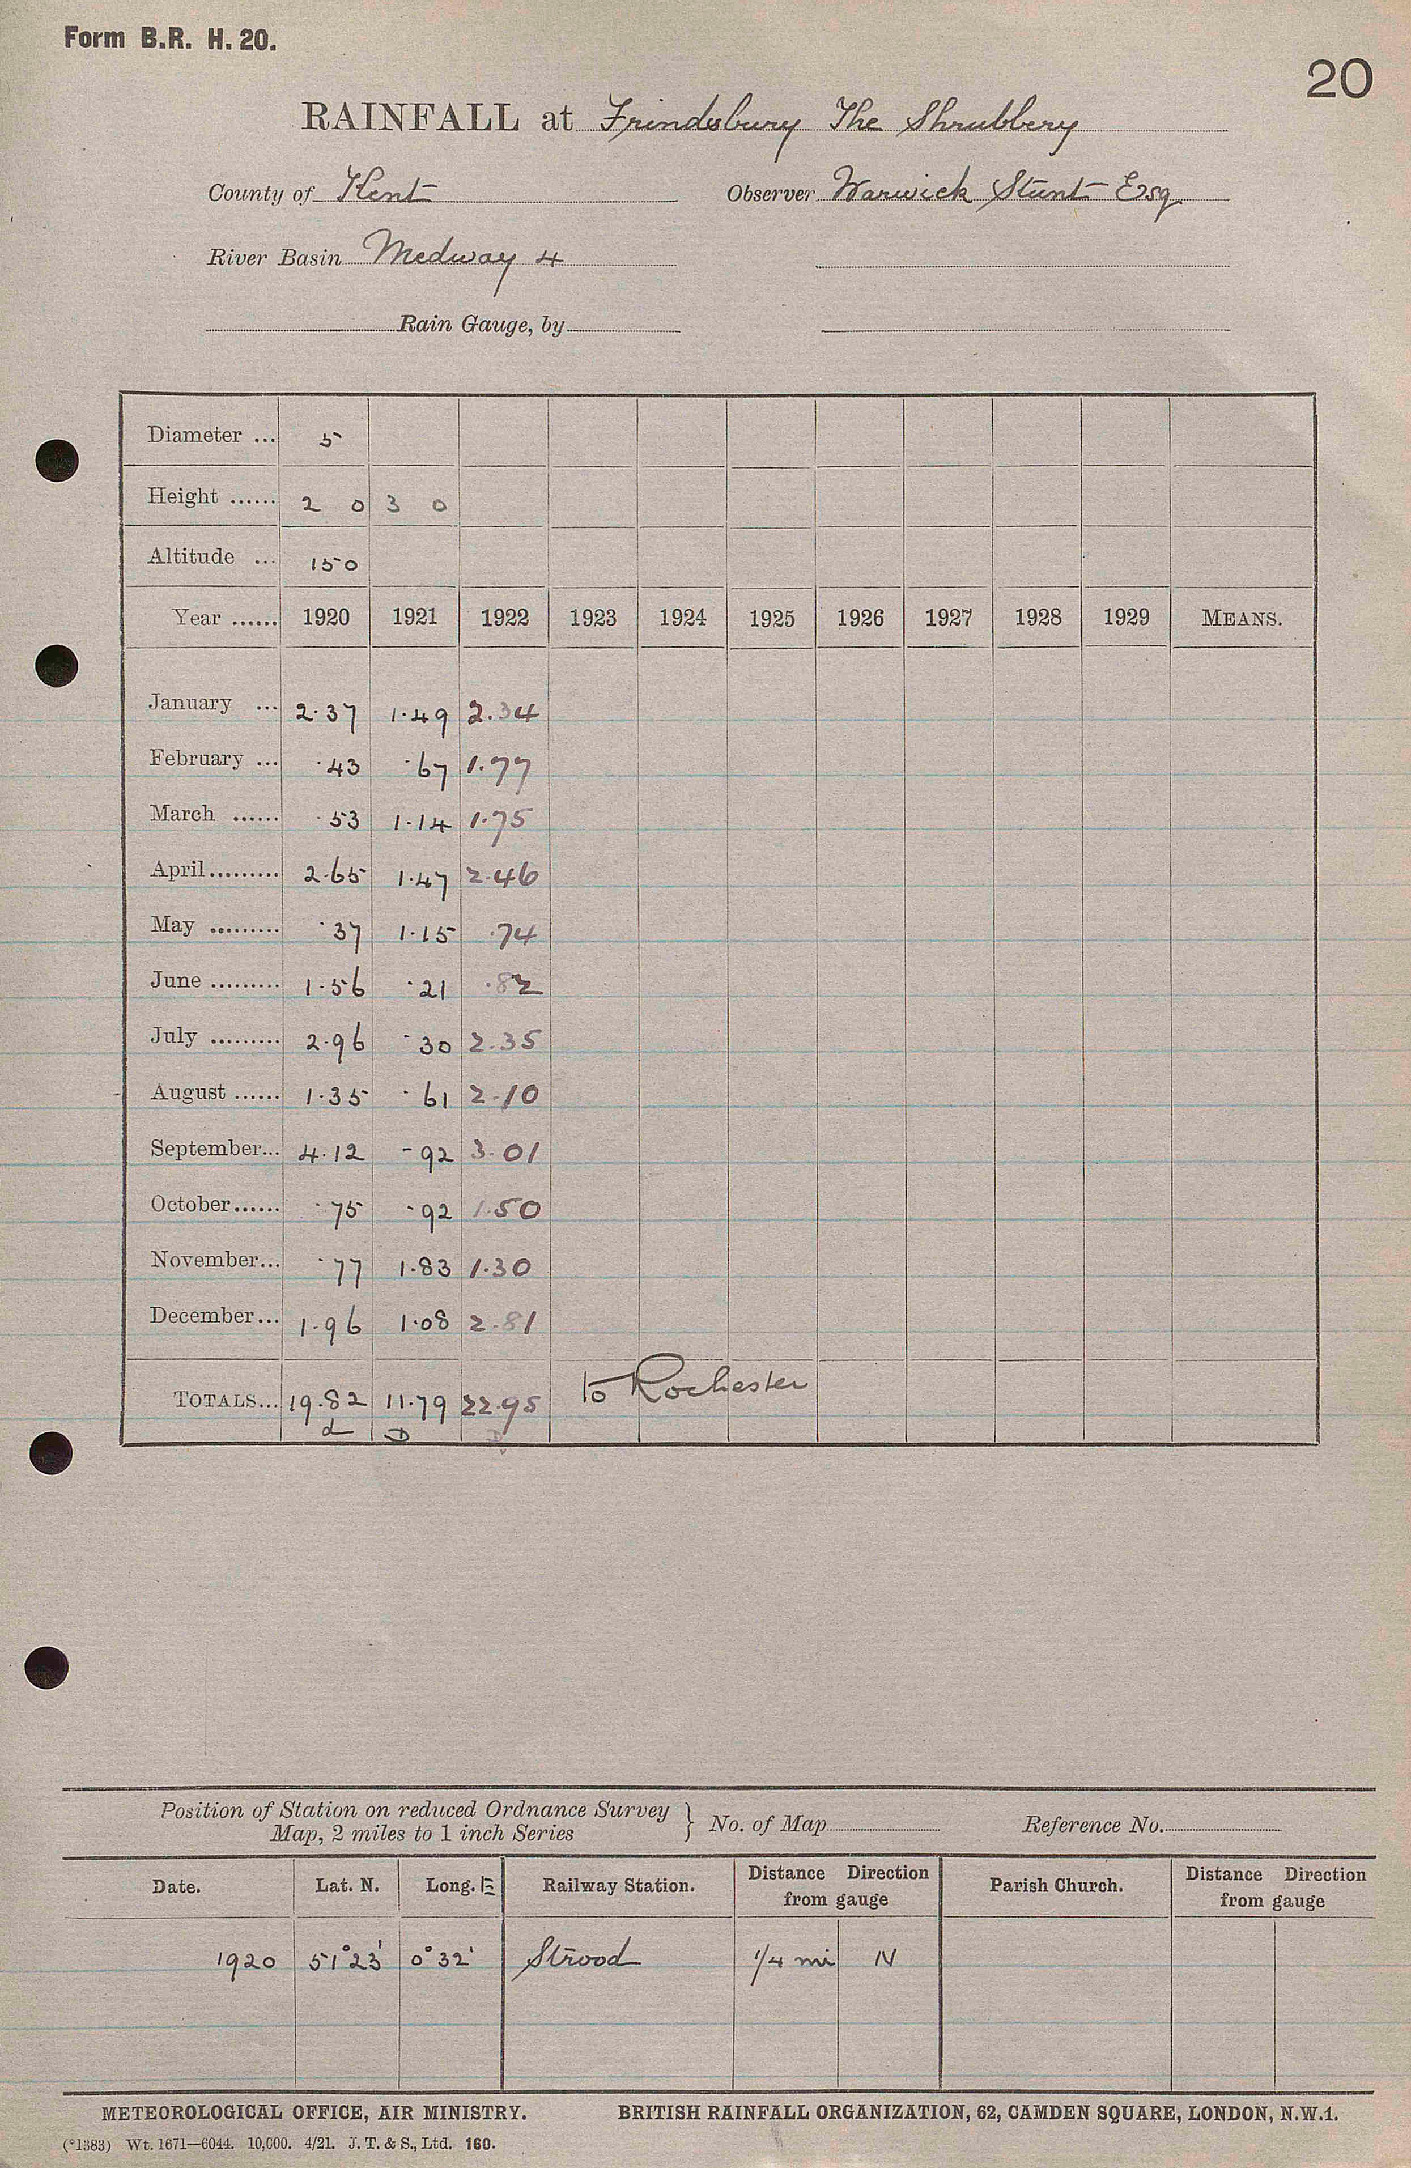 Form B.R. H. 20.
20
RAINFALL at Frindsbury The Shrubbery
County of Kent Observer Warwick Stunt Esq
River Basin Medway 4
Rain Gauge, by
Diameter ... 5
Height ...... 2 0 3 0
Altitude ... 150
Year ...... 1920 1921 1922 1923 1924 1925 1926 1927 1928 1929 MEANS.
January ... 2.37 1.49 2.34
February ... .43 .67 1.77
March ...... .53 1.14 1.75
April......... 2.65 1.47 2.46
May ......... .37 1.15 .74
June ......... 1.56 .21 .82
July ......... 2.96 .30 2.35
August ...... 1.35 .61 2.10
September... 4.12 .92 3.01
October...... .75 .92 1.50
November... .77 1.83 1.30
December... 1.96 1.08 2.81
TOTALS... 19.82 11.79 22.95 to Rochester
d D D
Position of Station on reduced Ordnance Survey Map, 2 miles to 1 inch Series } No. of Map Reference No.
Date. Lat. N. Long. E Railway Station. Distance Direction from gauge Parish Church. Distance Direction from gauge
1920 51°23' 0°32' Strood 1/4 mi N
METEOROLOGICAL OFFICE, AIR MINISTRY. BRITISH RAINFALL ORGANIZATION, 62, CAMDEN SQUARE, LONDON, N.W.1.
(*1383) Wt. 1671—6044. 10,000. 4/21. J. T. & S., Ltd. 160.